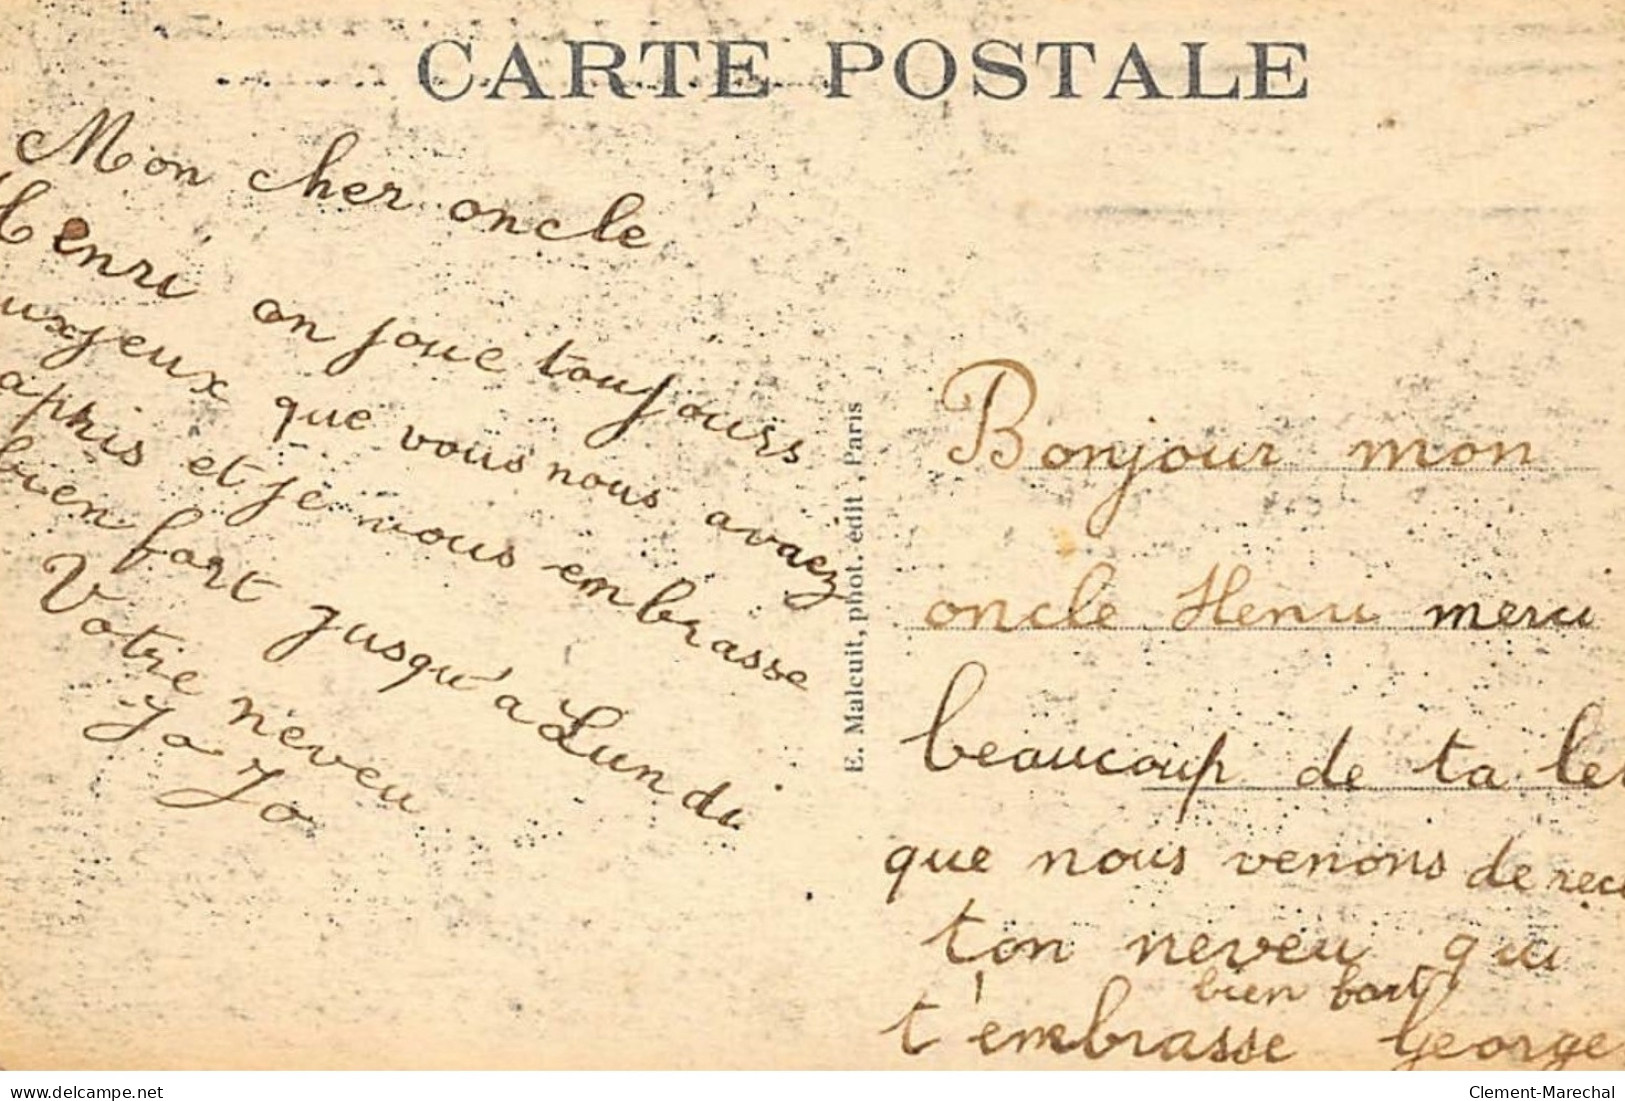 CARTE POSTALE
Mon cher oncle
Henri on joue toujours
uxjeux que vous nous avaez
aphis et je vous embrasse
bien fort jusqu'a Lundi
Votre neveu
Jo Jo
E. Malcuit, phot. édit., Paris
Bonjour mon
oncle Henri merci
beaucoup de ta let
que nous venons de rece
ton neveu qui
bien fort
t'embrasse George
delcampe.net
Clement-Marechal